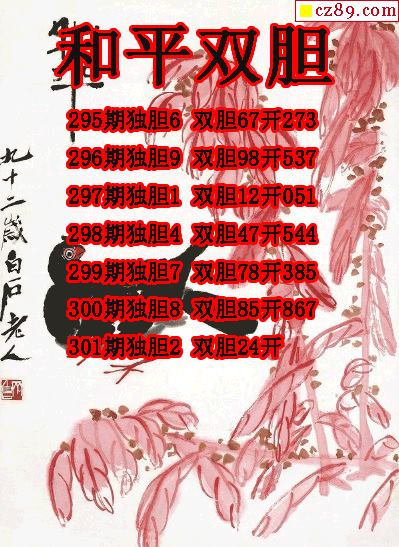 cz89.com
和平双胆
295期独胆6 双胆67开273
296期独胆9 双胆98开537
297期独胆1 双胆12开051
298期独胆4 双胆47开544
299期独胆7 双胆78开385
300期独胆8 双胆85开867
301期独胆2 双胆24开
九十二岁白石老人